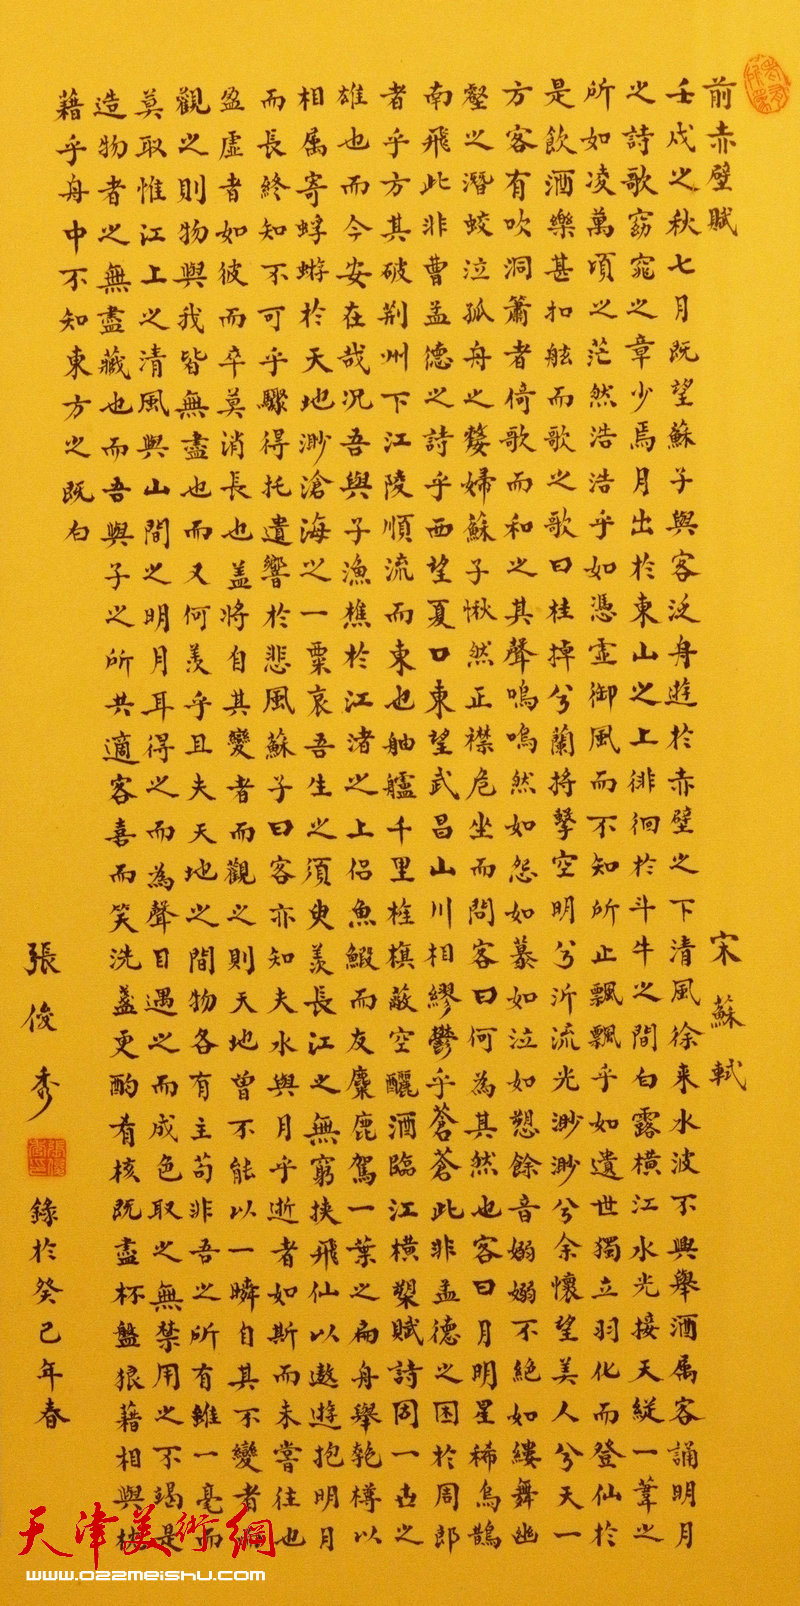 前赤壁賦 宋蘇軾
壬戌之秋七月既望蘇子與客泛舟遊於赤壁之下清風徐来水波不興舉酒属客誦明月
之詩歌窈窕之章少焉月出於東山之上徘徊於斗牛之間白露橫江水光接天縱一葦之
所如凌萬頃之茫然浩浩乎如憑虛御風而不知所止飄飄乎如遺世獨立羽化而登仙於
是飲酒樂甚扣舷而歌之歌曰桂棹兮蘭槳擊空明兮泝流光渺渺兮余懷望美人兮天一
方客有吹洞簫者倚歌而和之其聲嗚嗚然如怨如慕如泣如愬餘音嫋嫋不絕如縷舞幽
壑之潛蛟泣孤舟之嫠婦蘇子愀然正襟危坐而問客曰何為其然也客曰月明星稀烏鵲
南飛此非曹孟德之詩乎西望夏口東望武昌山川相繆鬱乎蒼蒼此非孟德之困於周郎
者乎方其破荊州下江陵順流而東也舳艫千里旌旗蔽空釃酒臨江橫槊賦詩固一世之
雄也而今安在哉况吾與子漁樵於江渚之上侶魚鰕而友麋鹿駕一葉之扁舟舉匏樽以
相属寄蜉蝣於天地渺滄海之一粟哀吾生之須臾羨長江之無窮挾飛仙以遨遊抱明月
而長終知不可乎驟得托遺響於悲風蘇子曰客亦知夫水與月乎逝者如斯而未嘗往也
盈虛者如彼而卒莫消長也盖將自其變者而觀之則天地曾不能以一瞬自其不變者而
觀之則物與我皆無盡也而又何羨乎且夫天地之間物各有主苟非吾之所有雖一毫而
莫取惟江上之清風與山間之明月耳得之而為聲目遇之而成色取之無禁用之不竭是
造物者之無盡藏也而吾與子之所共適客喜而笑洗盞更酌肴核既盡杯盤狼藉相與枕
藉乎舟中不知東方之既白
張俊秀 錄於癸巳年春
天津美術網
www.022meishu.com